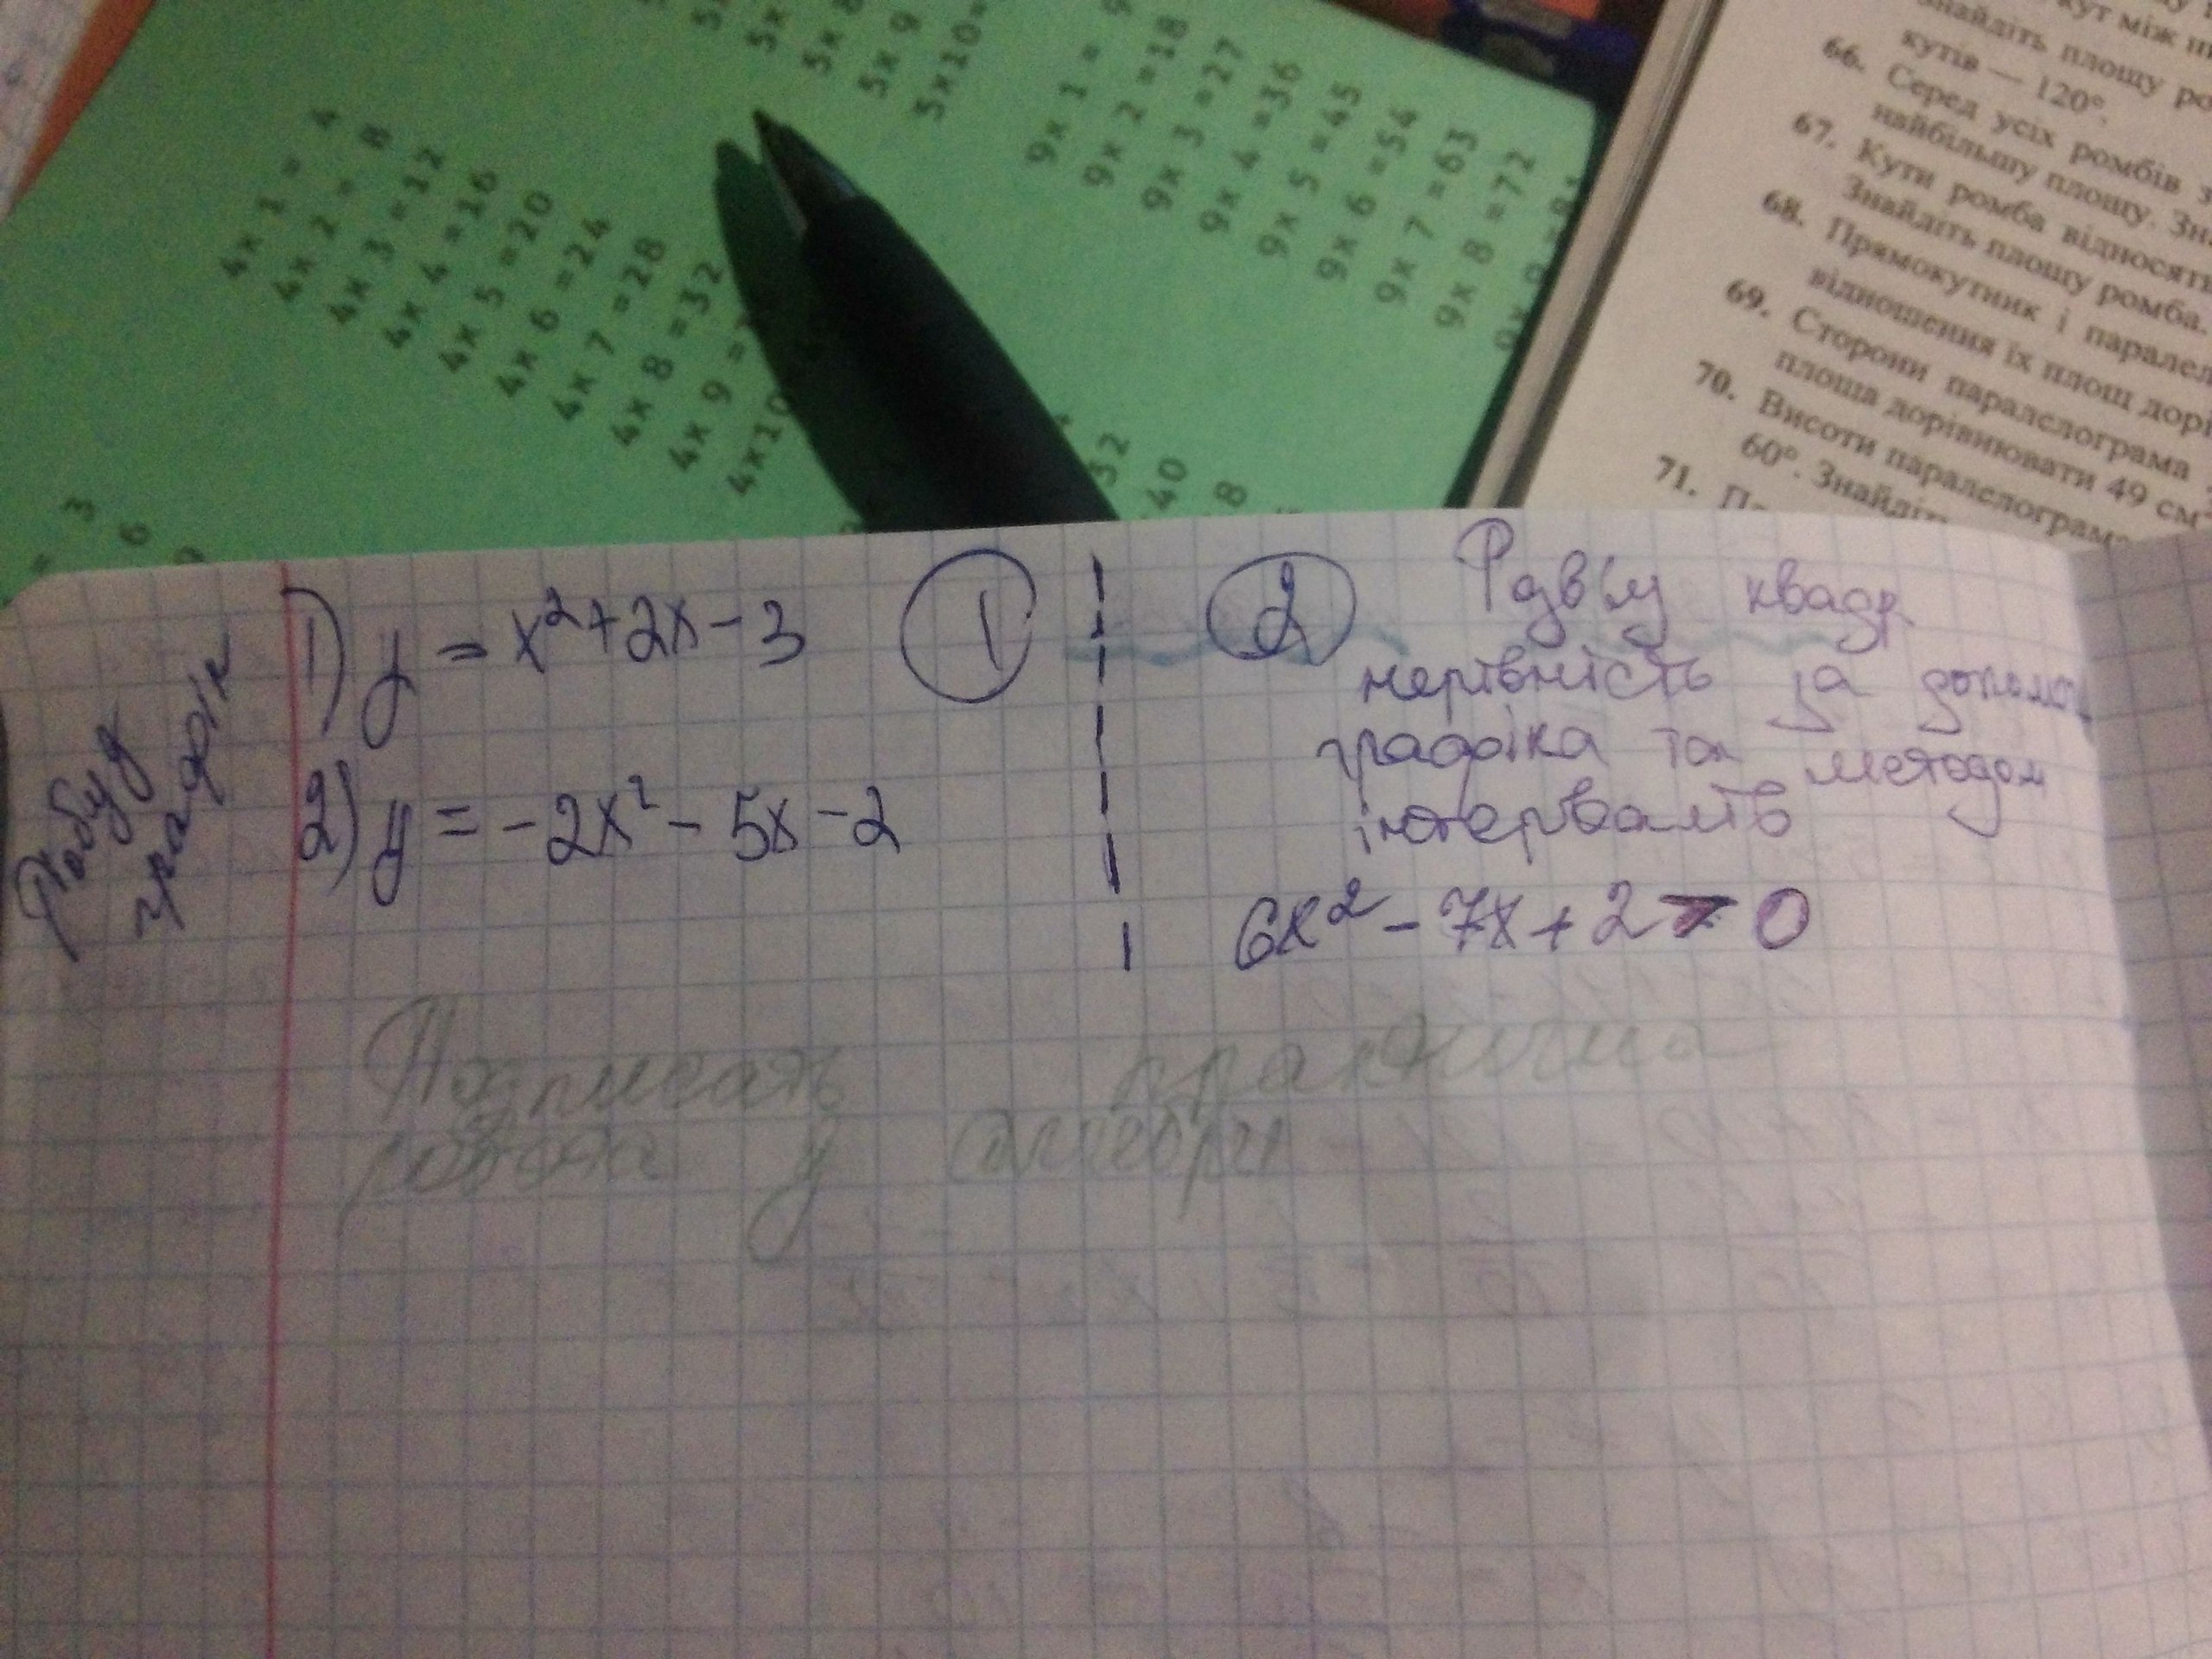 4x 1 = 4
4x 2 = 8
4x 3 = 12
4x 4 = 16
4x 5 = 20
4x 6 = 24
4x 7 = 28
4x 8 = 32
4x 9 =
4x10
= 3
6
9
5x 9
5x10=
9x 1 = 9
9x 2 = 18
9x 3 = 27
9x 4 = 36
9x 5 = 45
9x 6 = 54
9x 7 = 63
9x 8 = 72
9x 9 = 81
32
40
8
кут між
знайдіть площу
кутів — 120°.
66. Серед усіх ромбів
найбільшу площу.
67. Кути ромба відносять
Знайдіть площу ромба.
68. Прямокутник і паралел
відношення їх площ дорі
69. Сторони паралелограма
площа дорівнювати 49 см
70. Висоти паралелограма
60°. Знайдіть
71.
Побуд
графік
1) y = x²+2x-3 ①
2) y = -2x² - 5x - 2
② квадр
нерівність за допомог
графіка та методом
інтервалів
6x² - 7x + 2 > 0
практична
робота у алгебрі